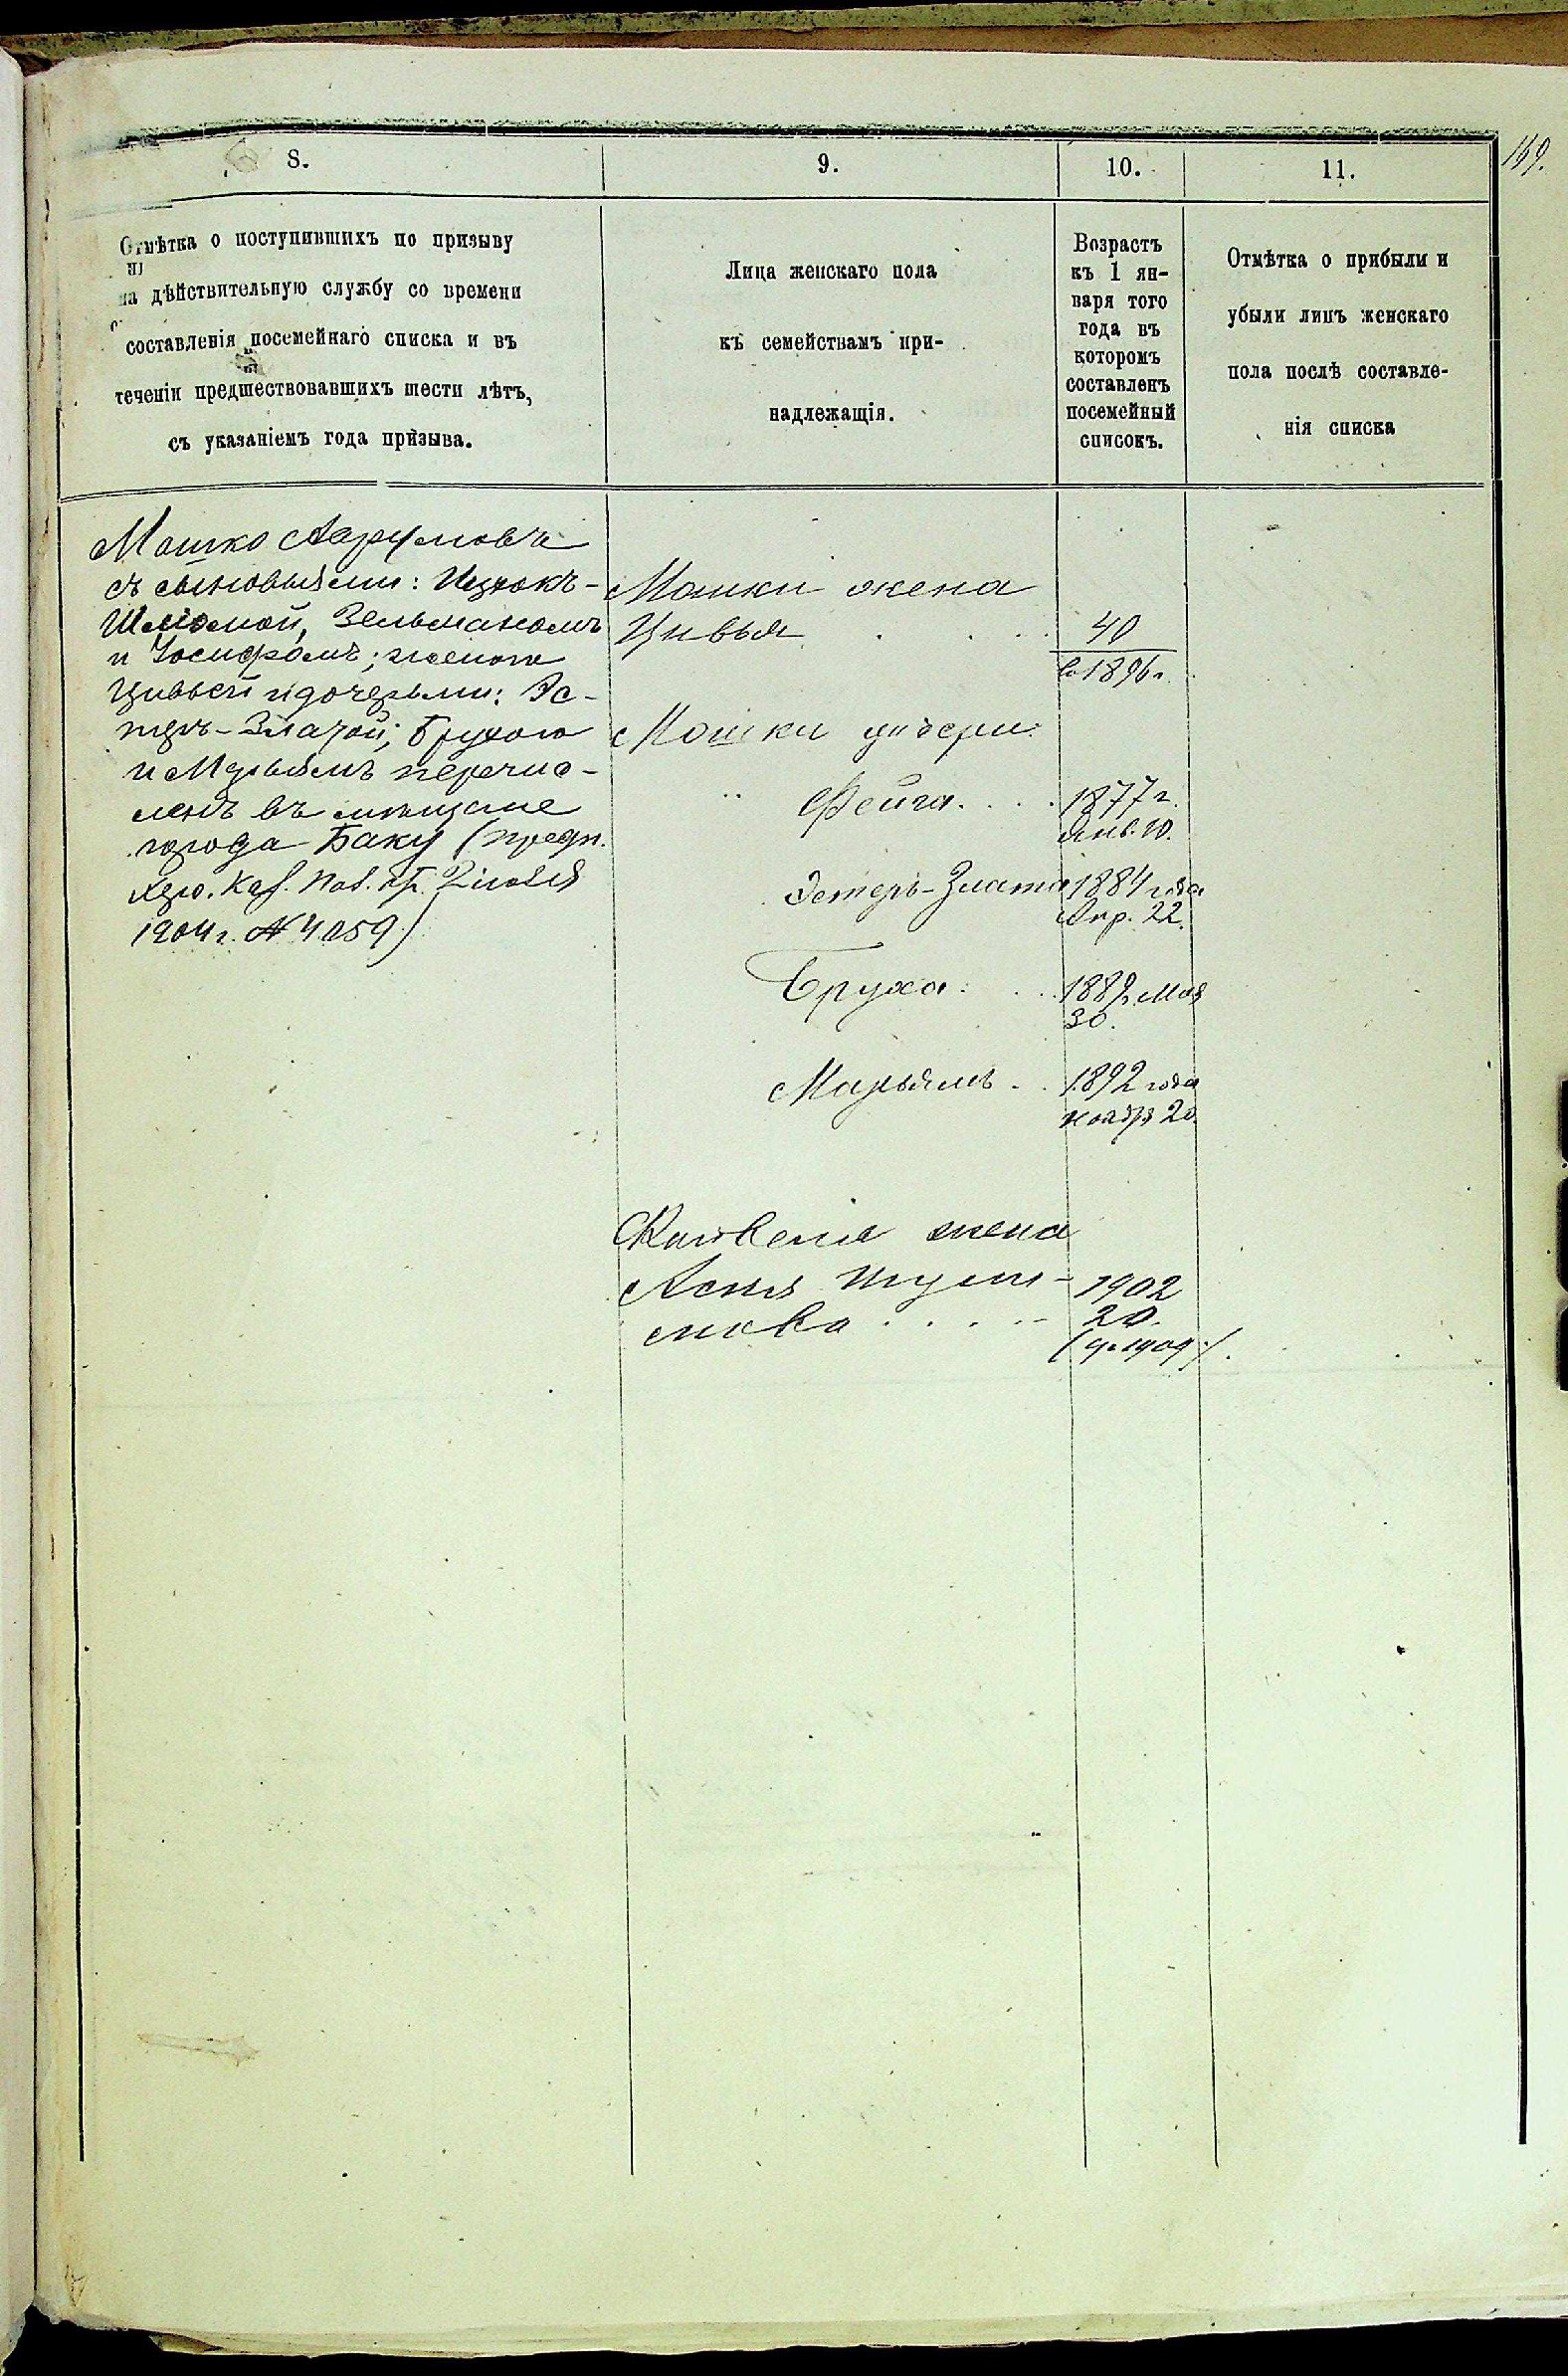 149.
8.
9.
10.
11.
Отмѣтка о поступившихъ по призыву
на дѣйствительную службу со времени
составленія посемейнаго списка и въ
теченіи предшествовавшихъ шести лѣтъ,
съ указаніемъ года призыва.
Лица женскаго пола
къ семействамъ при-
надлежащія.
Возрастъ
къ 1 ян-
варя того
года въ
которомъ
составленъ
посемейный
списокъ.
Отмѣтка о прибыли и
убыли лицъ женскаго
пола послѣ составле-
нія списка
Мошко Аврумовъ
съ сыновьями: Ицхокъ-
Шлёмой, Зельманомъ
и Іосифомъ; женою
Цивьей и дочерьми: Эс-
теръ-Златой; Брухою
и Марьямъ перечис-
ленъ въ мѣщане
города Баку (предп.
Каз. Пал. 2 іюля
1904 г. № 4059)
Мошки жена
Цивья . . . 40
въ 1896 г.
Мошки дочери:
" Фейга. . . . 1877 г.
Янв. 10.
Эстеръ-Злата 1884 года
Апр. 22.
Бруха. . . . 1889 г. Мая
30.
Марьямъ . . 1892 года
ноября 20.
жена
1902
20.